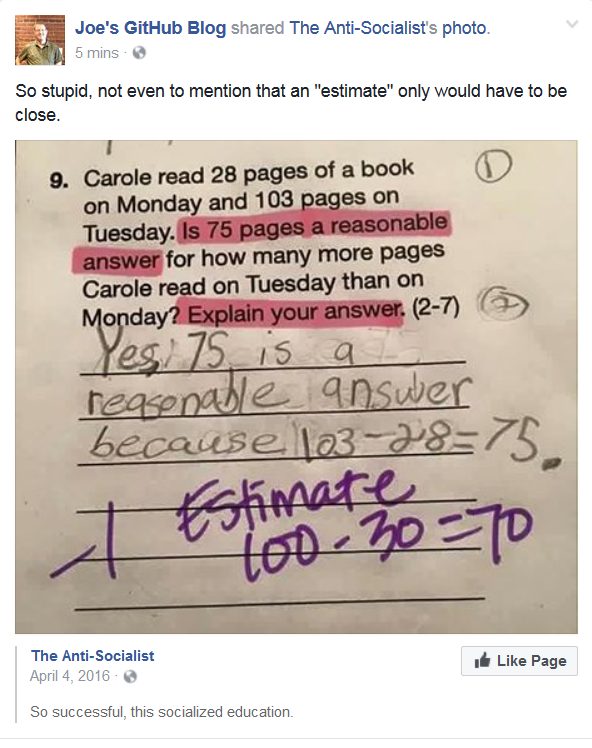 Joe's GitHub Blog shared The Anti-Socialist's photo.
5 mins ·
So stupid, not even to mention that an "estimate" only would have to be
close.
9. Carole read 28 pages of a book
on Monday and 103 pages on
Tuesday. Is 75 pages a reasonable
answer for how many more pages
Carole read on Tuesday than on
Monday? Explain your answer. (2-7)
1
2
Yes, 75 is a
reasonable answer
because 103-28=75.
-1 Estimate
100-30=70
The Anti-Socialist
April 4, 2016 ·
Like Page
So successful, this socialized education.